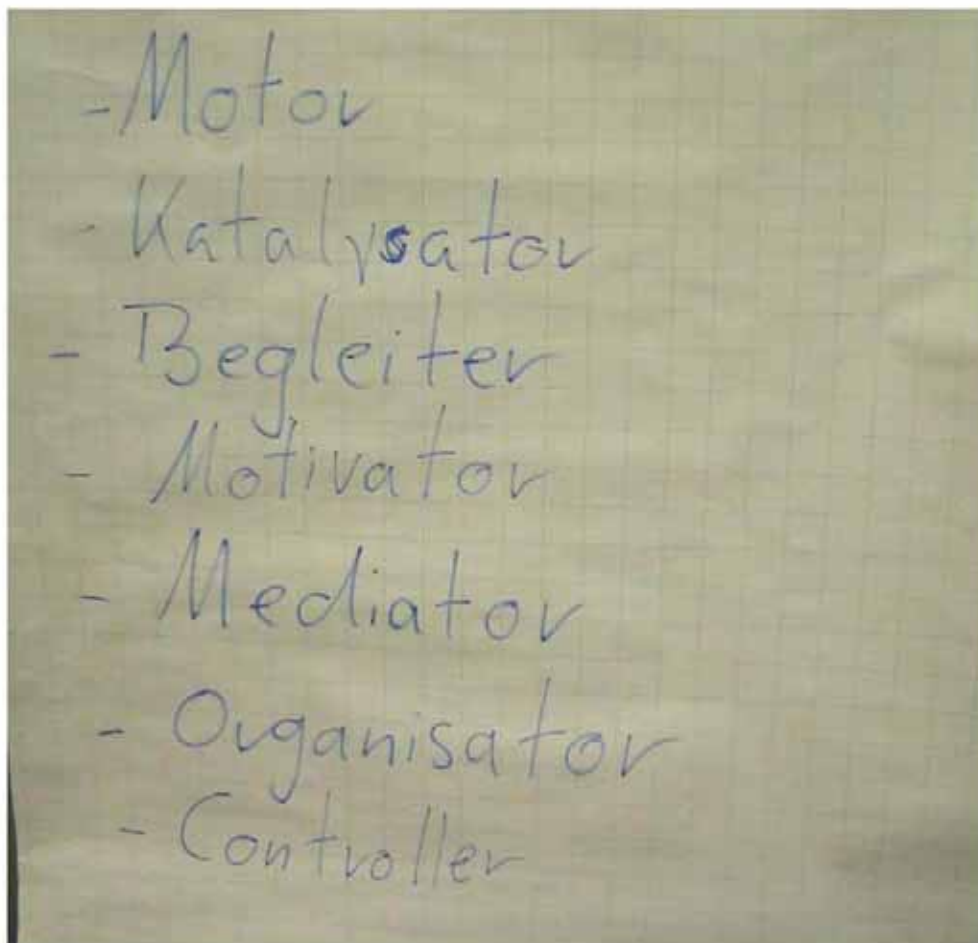 - Motor
- Katalysator
- Begleiter
- Motivator
- Mediator
- Organisator
- Controller